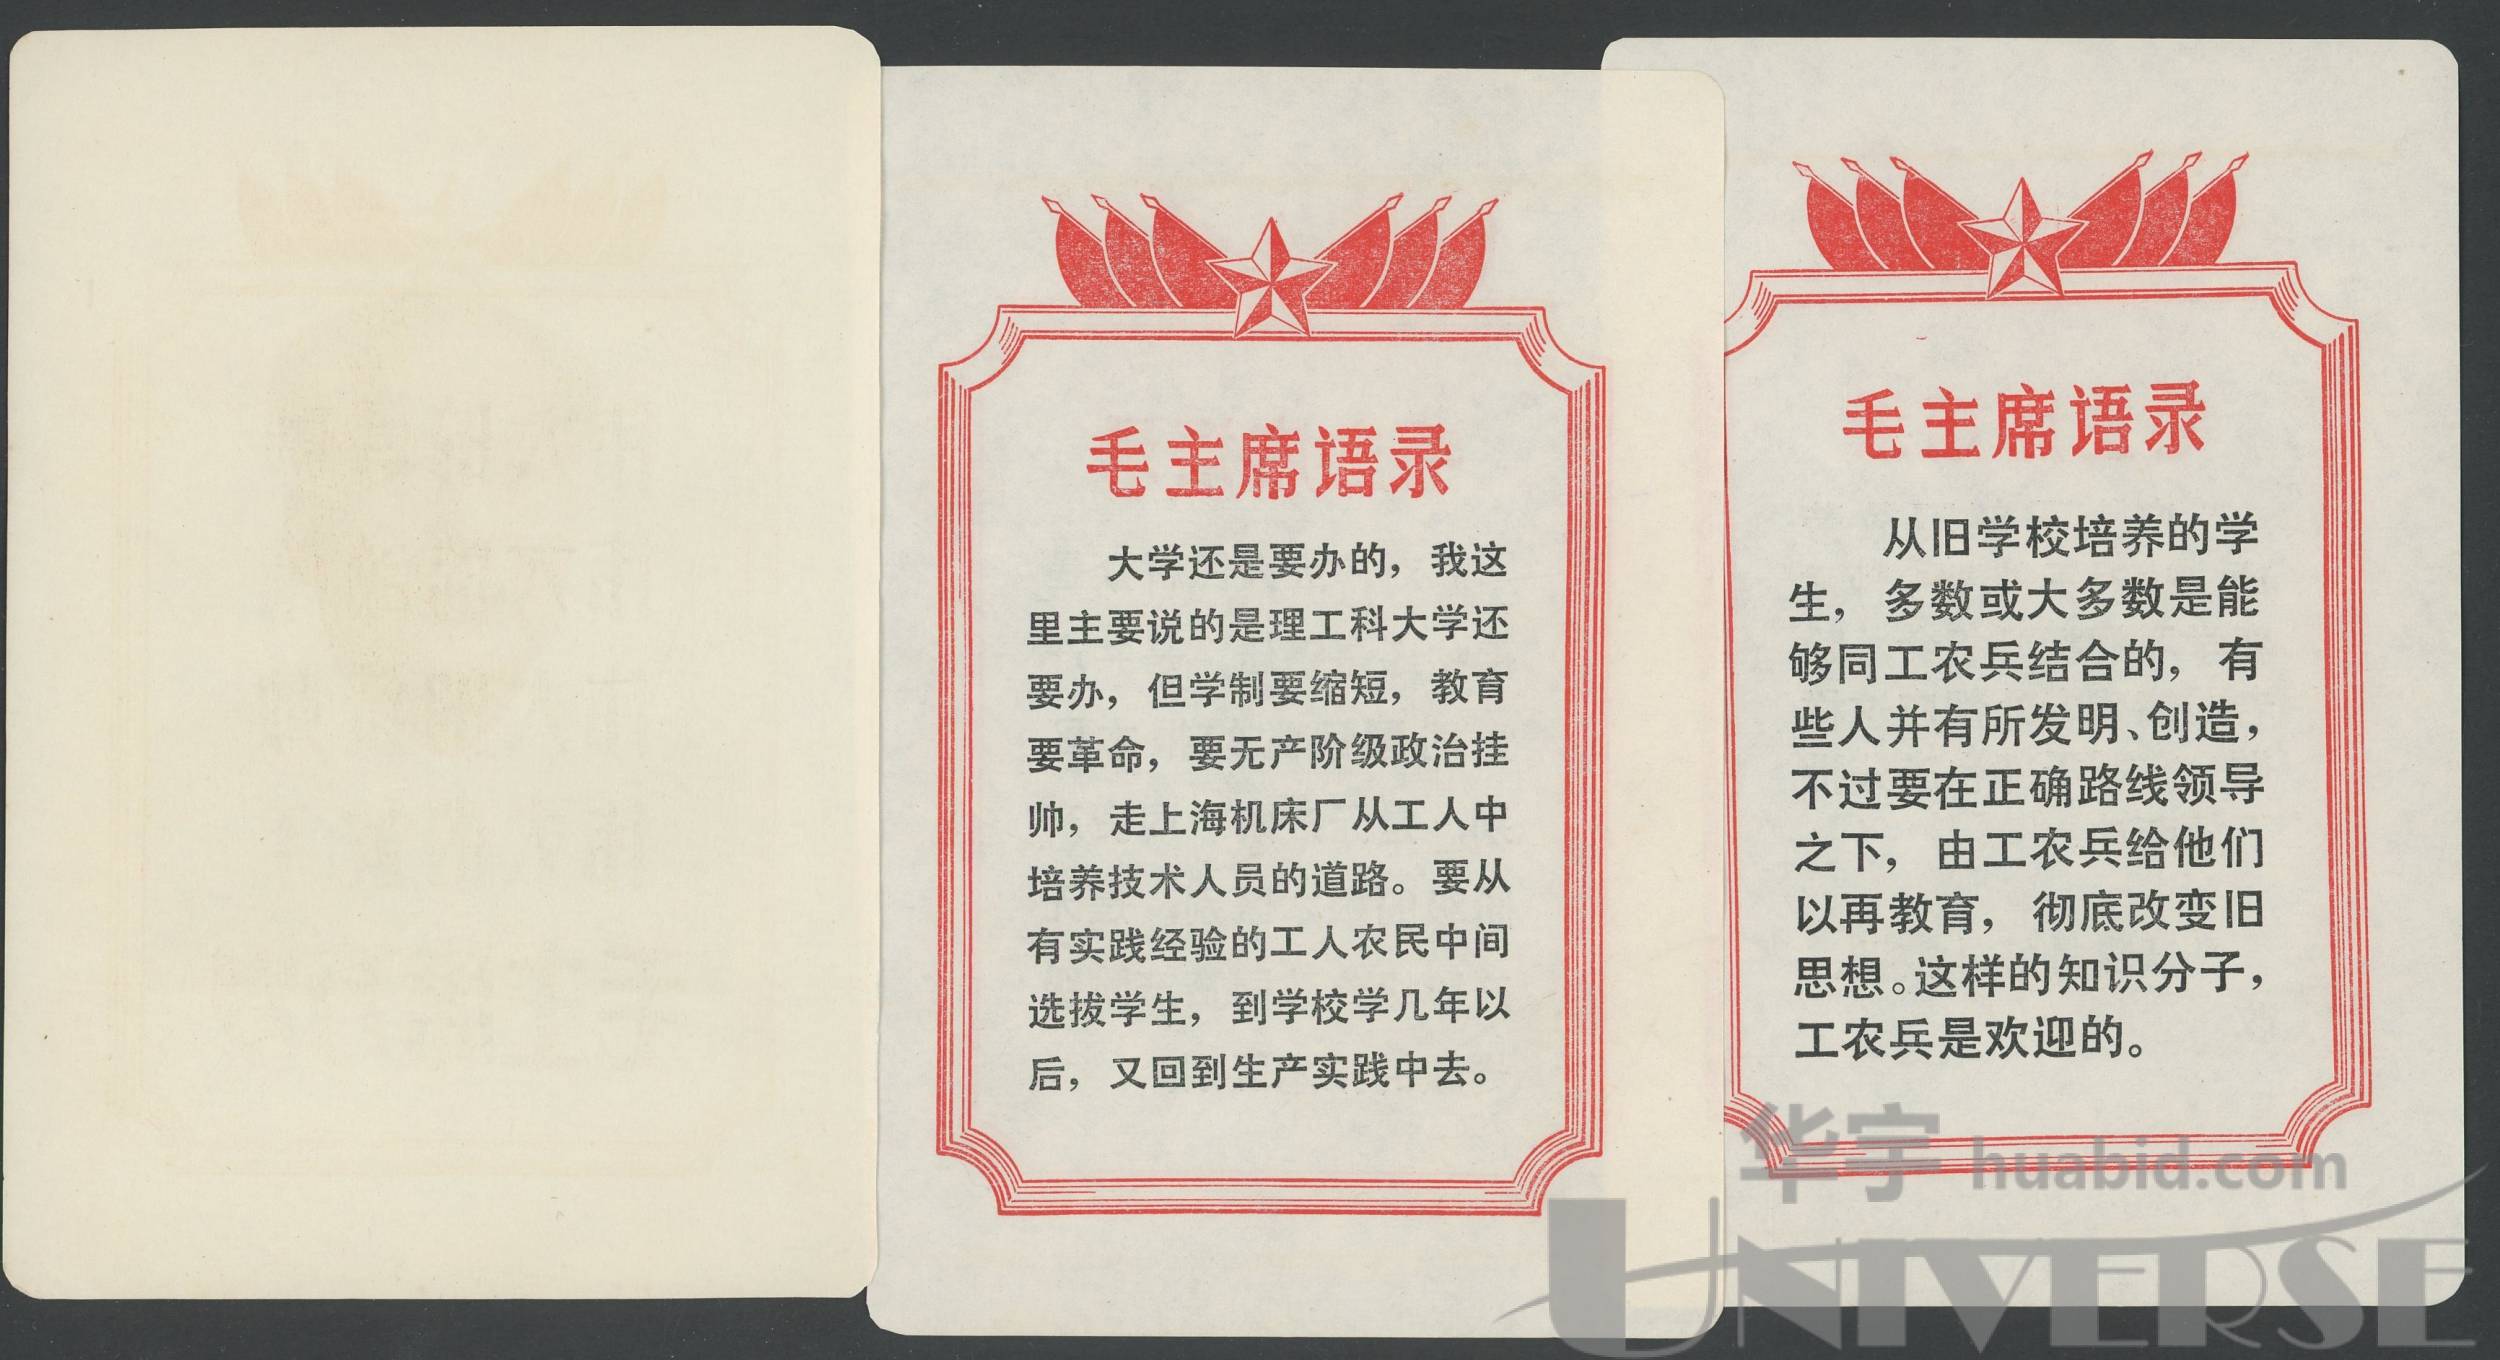 毛主席语录
大学还是要办的，我这
里主要说的是理工科大学还
要办，但学制要缩短，教育
要革命，要无产阶级政治挂
帅，走上海机床厂从工人中
培养技术人员的道路。要从
有实践经验的工人农民中间
选拔学生，到学校学几年以
后，又回到生产实践中去。
毛主席语录
从旧学校培养的学
生，多数或大多数是能
够同工农兵结合的，有
些人并有所发明、创造，
不过要在正确路线领导
之下，由工农兵给他们
以再教育，彻底改变旧
思想。这样的知识分子，
工农兵是欢迎的。
华宇 huabid.com
UNIVERSE